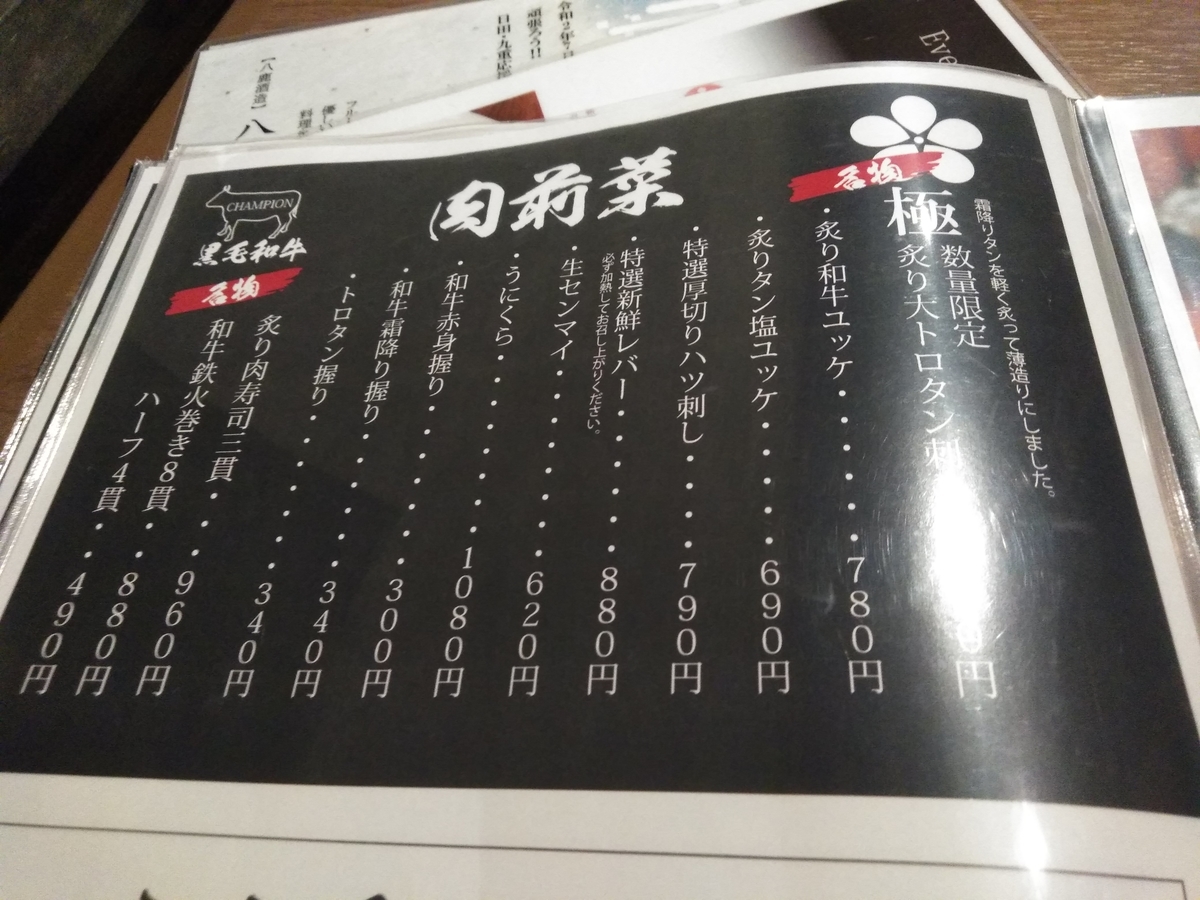 Eve
令和2年7月
頑張ろう!!
日田・九重応援
【八鹿酒造】
八
フルー
優しい
料理
肉前菜
霜降りタンを軽く炙って薄造りにしました。
名物
極 数量限定
炙り大トロタン刺 円
・炙り和牛ユッケ・・・・・・780円
・炙りタン塩ユッケ・・・・・690円
・特選厚切りハツ刺し・・・・790円
・特選新鮮レバー・・・・・・880円
必ず加熱してお召し上がりください。
・生センマイ・・・・・・・・620円
・うにくら・・・・・・・・1080円
・和牛赤身握り・・・・・・・300円
・和牛霜降り握り・・・・・・340円
・トロタン握り・・・・・・・340円
CHAMPION
黒毛和牛
名物
炙り肉寿司三貫・・・960円
和牛鉄火巻き8貫・・880円
ハーフ4貫・・490円